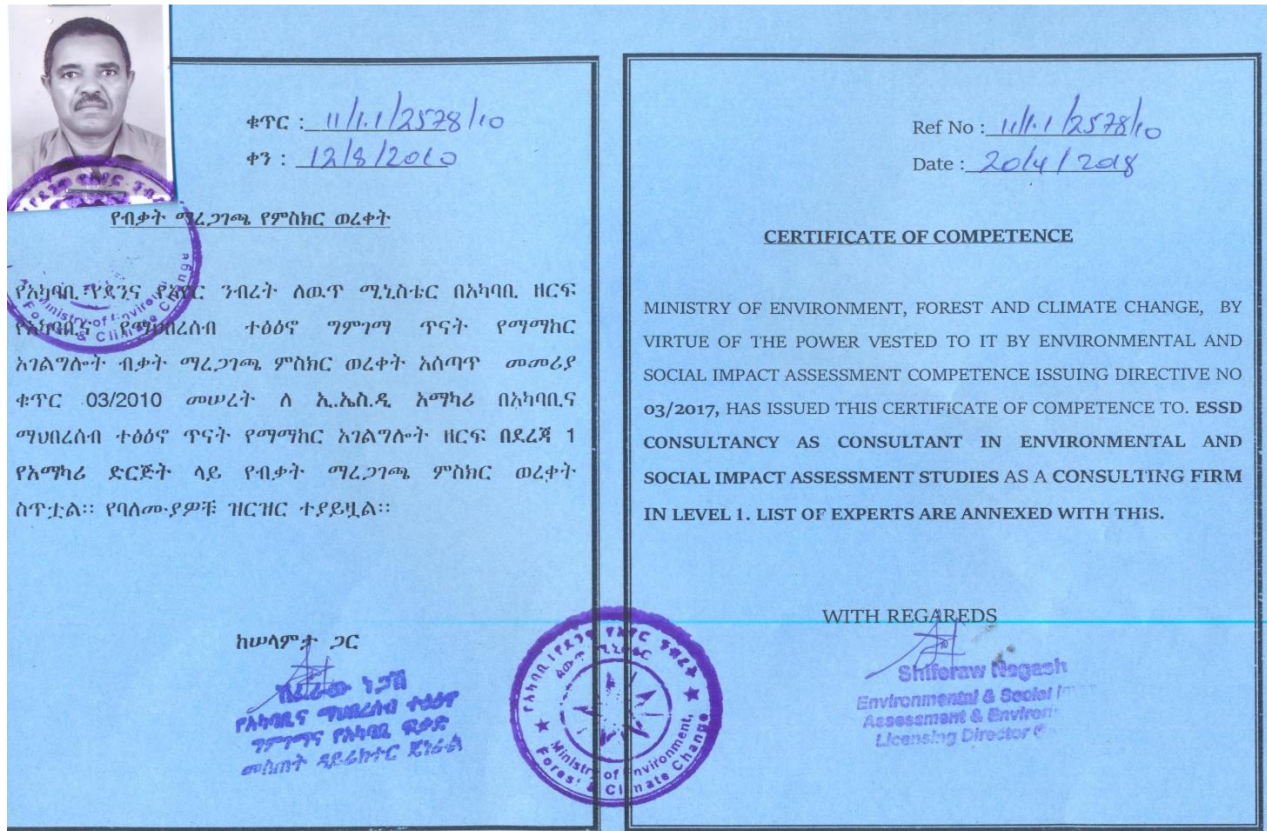 ቁጥር : 11/1.1/2578/10
ቀን : 12/8/2010
የብቃት ማረጋገጫ የምስክር ወረቀት
የአካባቢ፣የደንና የአየር ንብረት ለዉጥ ሚኒስቴር በአካባቢ ዘርፍ
የአካባቢና የማህበረሰብ ተፅዕኖ ግምገማ ጥናት የማማከር
አገልግሎት ብቃት ማረጋገጫ ምስክር ወረቀት አሰጣጥ መመሪያ
ቁጥር 03/2010 መሠረት ለ ኢ.ኤስ.ዲ አማካሪ በአካባቢና
ማህበረሰብ ተፅዕኖ ጥናት የማማከር አገልግሎት ዘርፍ በደረጃ 1
የአማካሪ ድርጅት ላይ የብቃት ማረጋገጫ ምስክር ወረቀት
ስጥቷል፡፡ የባለሙያዎቹ ዝርዝር ተያይዟል፡፡
ከሠላምታ ጋር
ሽፈራው ነጋሽ
የአካባቢና ማህበረሰብ ተፅዕኖ
ግምገማና የአካባቢ ፍቃድ
መስጠት ዳይሬክተር ጄኔራል
የአካባቢ፣የደንና የአየር ንብረት
ለውጥ ሚኒስቴር
Ministry of Environment,
Forest & Climate Change
Ref No : 11/1.1/2578/10
Date : 20/4/2018
CERTIFICATE OF COMPETENCE
MINISTRY OF ENVIRONMENT, FOREST AND CLIMATE CHANGE, BY
VIRTUE OF THE POWER VESTED TO IT BY ENVIRONMENTAL AND
SOCIAL IMPACT ASSESSMENT COMPETENCE ISSUING DIRECTIVE NO
03/2017, HAS ISSUED THIS CERTIFICATE OF COMPETENCE TO. ESSD
CONSULTANCY AS CONSULTANT IN ENVIRONMENTAL AND
SOCIAL IMPACT ASSESSMENT STUDIES AS A CONSULTING FIRM
IN LEVEL 1. LIST OF EXPERTS ARE ANNEXED WITH THIS.
WITH REGAREDS
Shiferaw Negash
Environmental & Social
Assessment &
Licensing Director